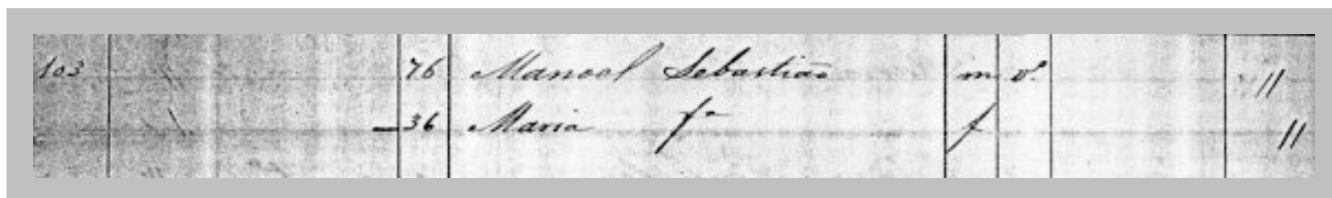 103 76 Manoel Sebastião m v.º 11
36 Maria fª f 11